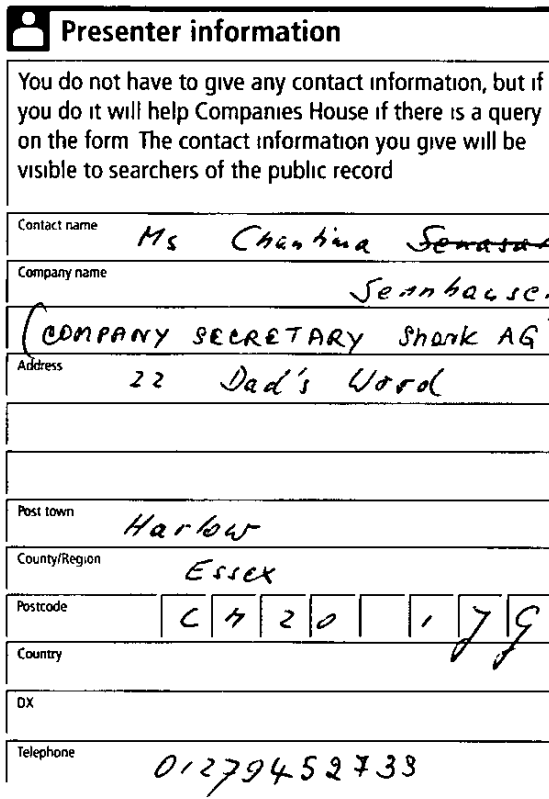 Presenter information
You do not have to give any contact information, but if
you do it will help Companies House if there is a query
on the form The contact information you give will be
visible to searchers of the public record
Contact name Ms Chantina
Company name
(COMPANY SECRETARY Shark AG
Address 22 Dad's Wood
Post town Harlow
County/Region Essex
Postcode CM20 1
Country
DX
Telephone 01279452733